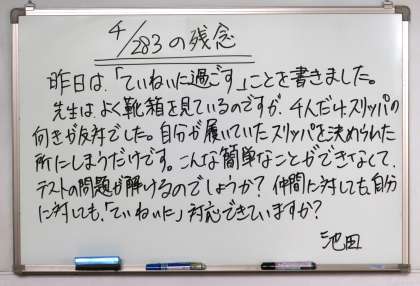 4/283の残念
昨日は、「ていねいに過ごす」ことを書きました。
先生は、よく靴箱を見ているのですが、4人だけ、スリッパの
向きが反対でした。自分が履いていたスリッパを決められた
所にしまうだけです。こんな簡単なことができなくて、
テストの問題が解けるのでしょうか？仲間に対しても、自分
に対しても、「ていねいに」対応できていますか？
池田